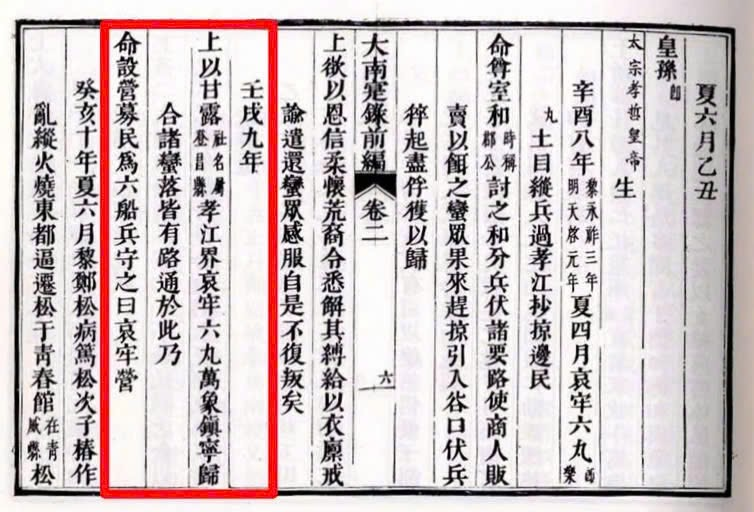 夏六月乙丑
皇孫卽
太宗孝哲皇帝生
辛酉八年黎永祚三年明天啓元年夏四月哀牢六丸卽樂
丸土目縱兵過孝江抄掠邊民
命尊室和時稱郡公討之和分兵伏諸要路使商人販
賣以餌之蠻眾果來趕掠引入谷口伏兵
猝起盡俘獲以歸
大南寔錄前編卷二 六
上欲以恩信柔懷荒裔令悉解其縛給以衣廪戒
諭遣還蠻眾感服自是不復叛矣
壬戌九年
上以甘露社名屬登昌縣孝江界哀牢六丸萬象鎮寧歸
合諸蠻落皆有路通於此乃
命設營募民爲六船兵守之曰哀牢營
癸亥十年夏六月黎鄭松病篤松次子椿作
亂縱火燒東都逼遷松于青春館在青威縣松